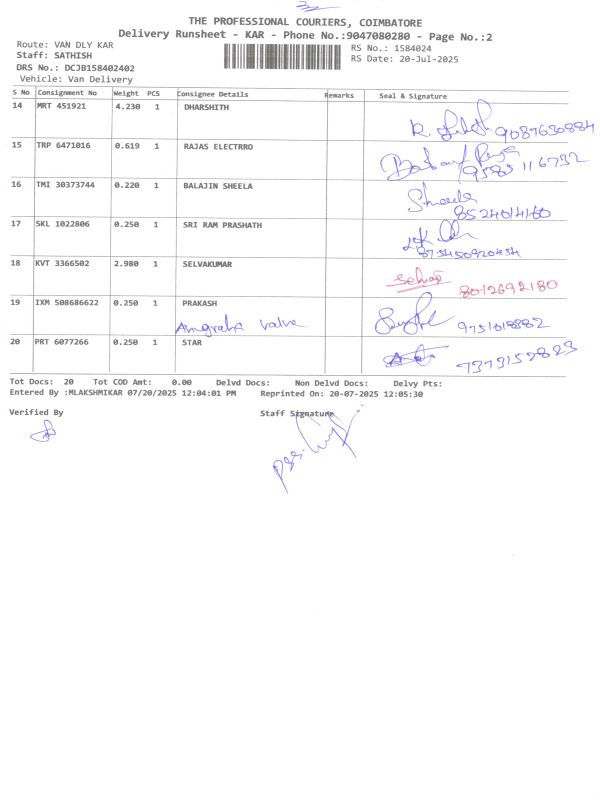 THE PROFESSIONAL COURIERS, COIMBATORE
Delivery Runsheet - KAR - Phone No.:9047080280 - Page No.:2
Route: VAN DLY KAR
RS No.: 1584024
Staff: SATHISH
RS Date: 20-Jul-2025
DRS No.: DCJB158402402
Vehicle: Van Delivery
S No Consignment No Weight PCS Consignee Details Remarks Seal & Signature
14 MRT 451921 4.230 1 DHARSHITH
9087630884
15 TRP 6471016 0.619 1 RAJAS ELECTRRO
9585116732
16 TMI 30373744 0.220 1 BALAJIN SHEELA
Sheela
8524014160
17 SKL 1022806 0.250 1 SRI RAM PRASHATH
18 KVT 3366502 2.980 1 SELVAKUMAR
8012692180
19 IXM 508686622 0.250 1 PRAKASH
valve
9751618882
20 PRT 6077266 0.250 1 STAR
7373152823
Tot Docs: 20 Tot COD Amt: 0.00 Delvd Docs: Non Delvd Docs: Delvy Pts:
Entered By :MLAKSHMIKAR 07/20/2025 12:04:01 PM Reprinted On: 20-07-2025 12:05:30
Verified By Staff Signature